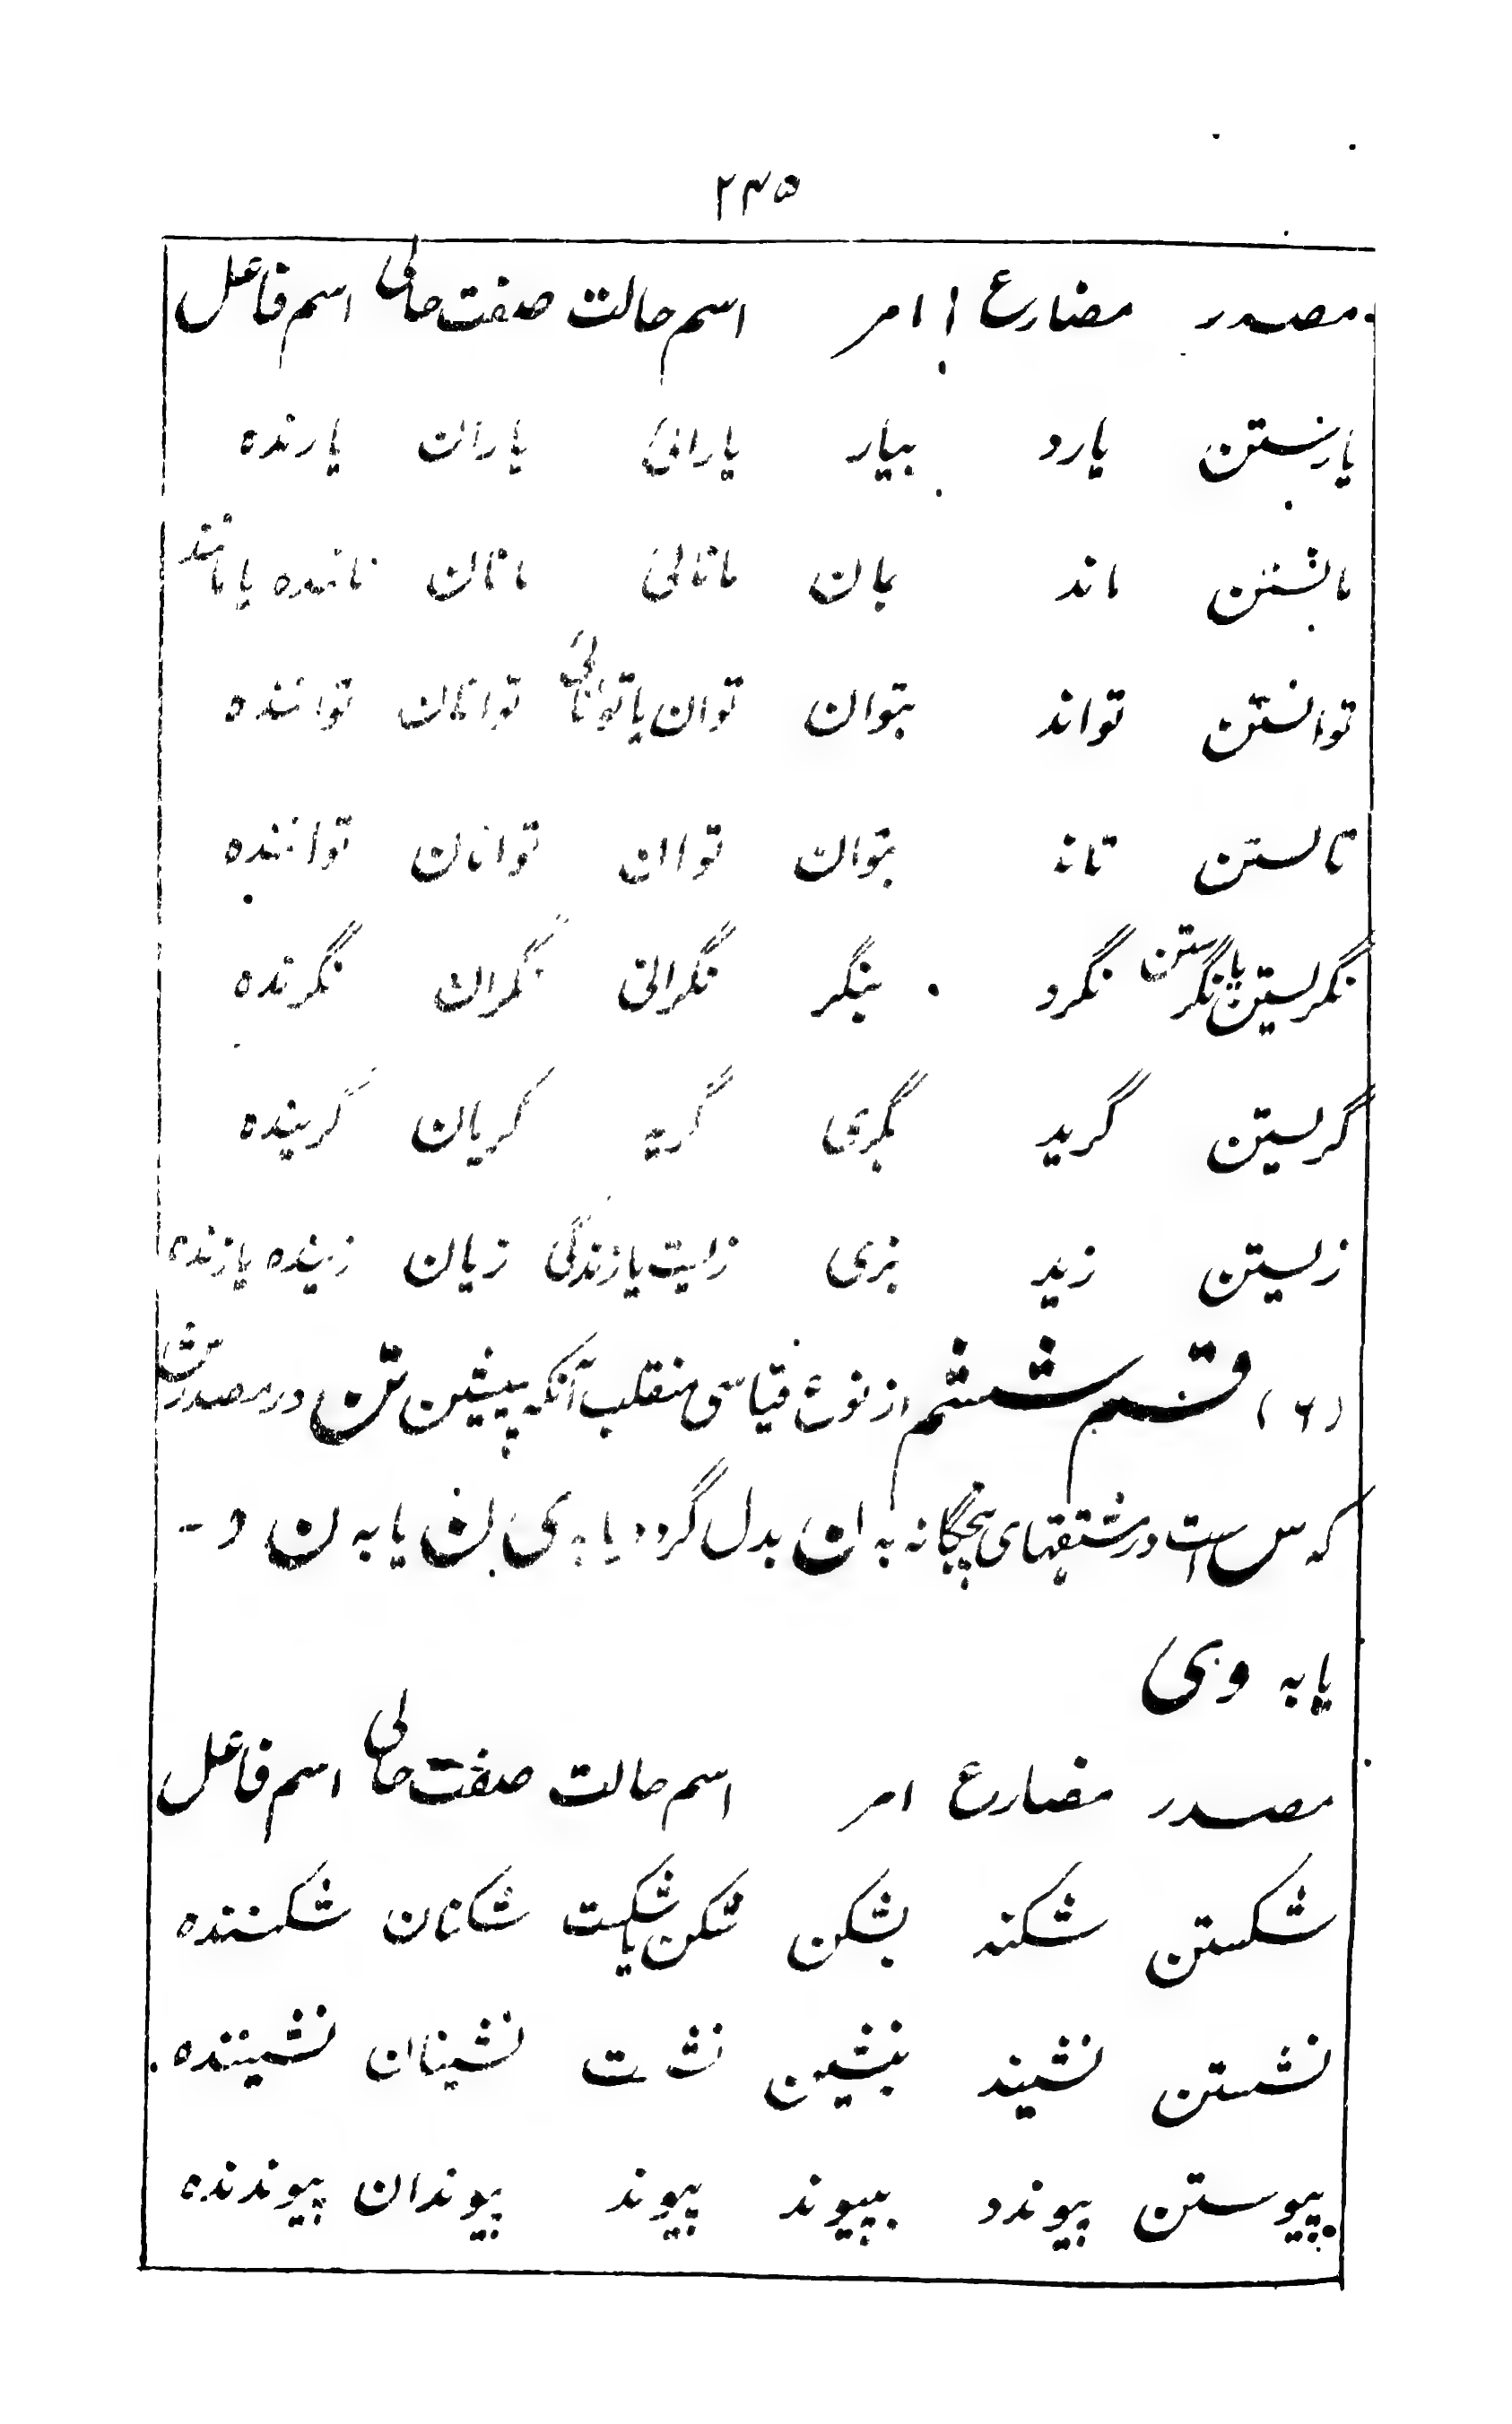 ۲۴۵
مصدر مضارع امر اسم حالت صفت حالی اسم فاعل
یارنستن یارد بیار یارائی یاران یارنده
مانستن ماند بمان مانائی مانان ماننده یا مانند
توانستن تواند بتوان توان یا توانائی توانان تواننده
تانستن تاند بتوان توان توانان تواننده
نگریستن یا نگرستن نگرد بنگر نگرانی نگران نگرنده
گریستن گرید بگری گریه گریان گرینده
زیستن زید بزی زیست یا زندگی زیان زینده یا زنده
(۶) قسم ششم از نوع قیاسی منقلب آنکه پیشین تن در مصدرش
که س است در مشتقهای پنجگانه به ان بدل گردد یا به ی ن یا به ن د -
یا به و ی
مصدر مضارع امر اسم حالت صفت حالی اسم فاعل
شکستن شکند بشکن شکن یا شکست شکنان شکننده
نشستن نشیند بنشین نشست نشینان نشیننده
پیوستن پیوندد بپیوند پیوند پیوندان پیوندنده